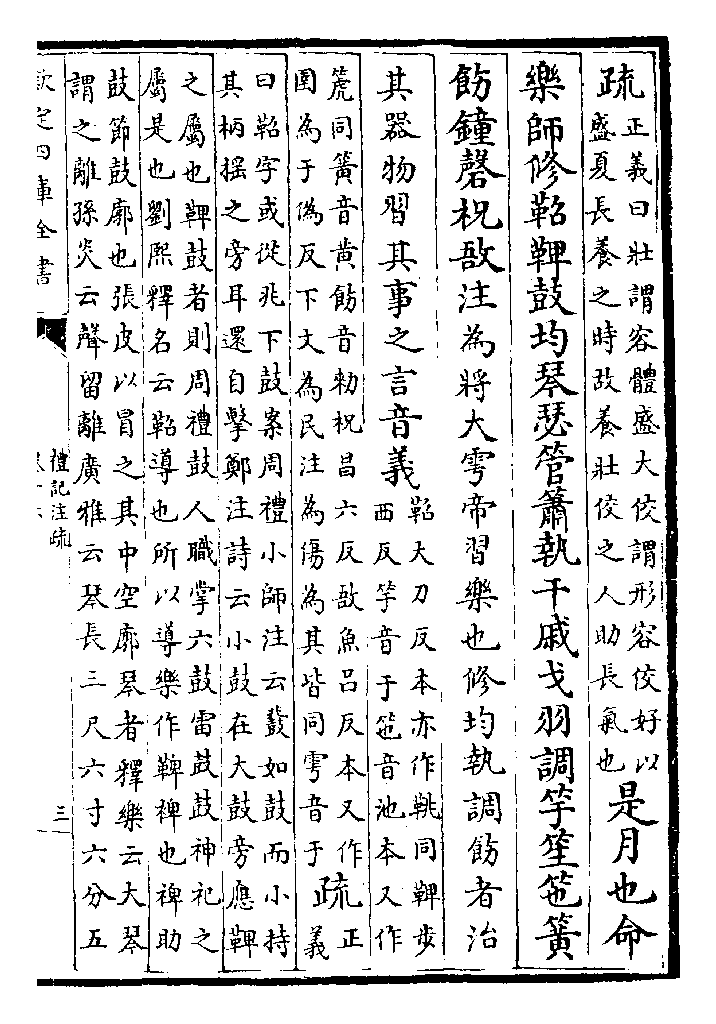 疏正義曰壯謂容體盛大佼謂形容佼好以
盛夏長養之時故養壯佼之人助長氣也是月也命
樂師修鞀鞞鼓均琴瑟管簫執干戚戈羽調竽笙竾簧
飭鐘磬柷敔注為將大雩帝習樂也修均執調飭者治
其器物習其事之言音義鞀大刀反本亦作鞉同鞞步
西反竽音于竾音池本又作
箎同簧音黄飭音勑柷昌六反敔魚吕反本又作
圉為于偽反下文為民注為傷為其皆同雩音于疏正
義
曰鞀字或從兆下鼓案周禮小師注云鼗如鼓而小持
其柄摇之旁耳還自擊鄭注詩云小鼓在大鼓旁應鞞
之屬也鞞鼓者則周禮鼓人職掌六鼓雷鼓鼓神祀之
屬是也劉熙釋名云鞀導也所以導樂作鞞裨也裨助
鼓節鼓廓也張皮以冒之其中空廓琴者釋樂云大琴
謂之離孫炎云聲留離廣雅云琴長三尺六寸六分五
欽定四庫全書
禮記注疏
三